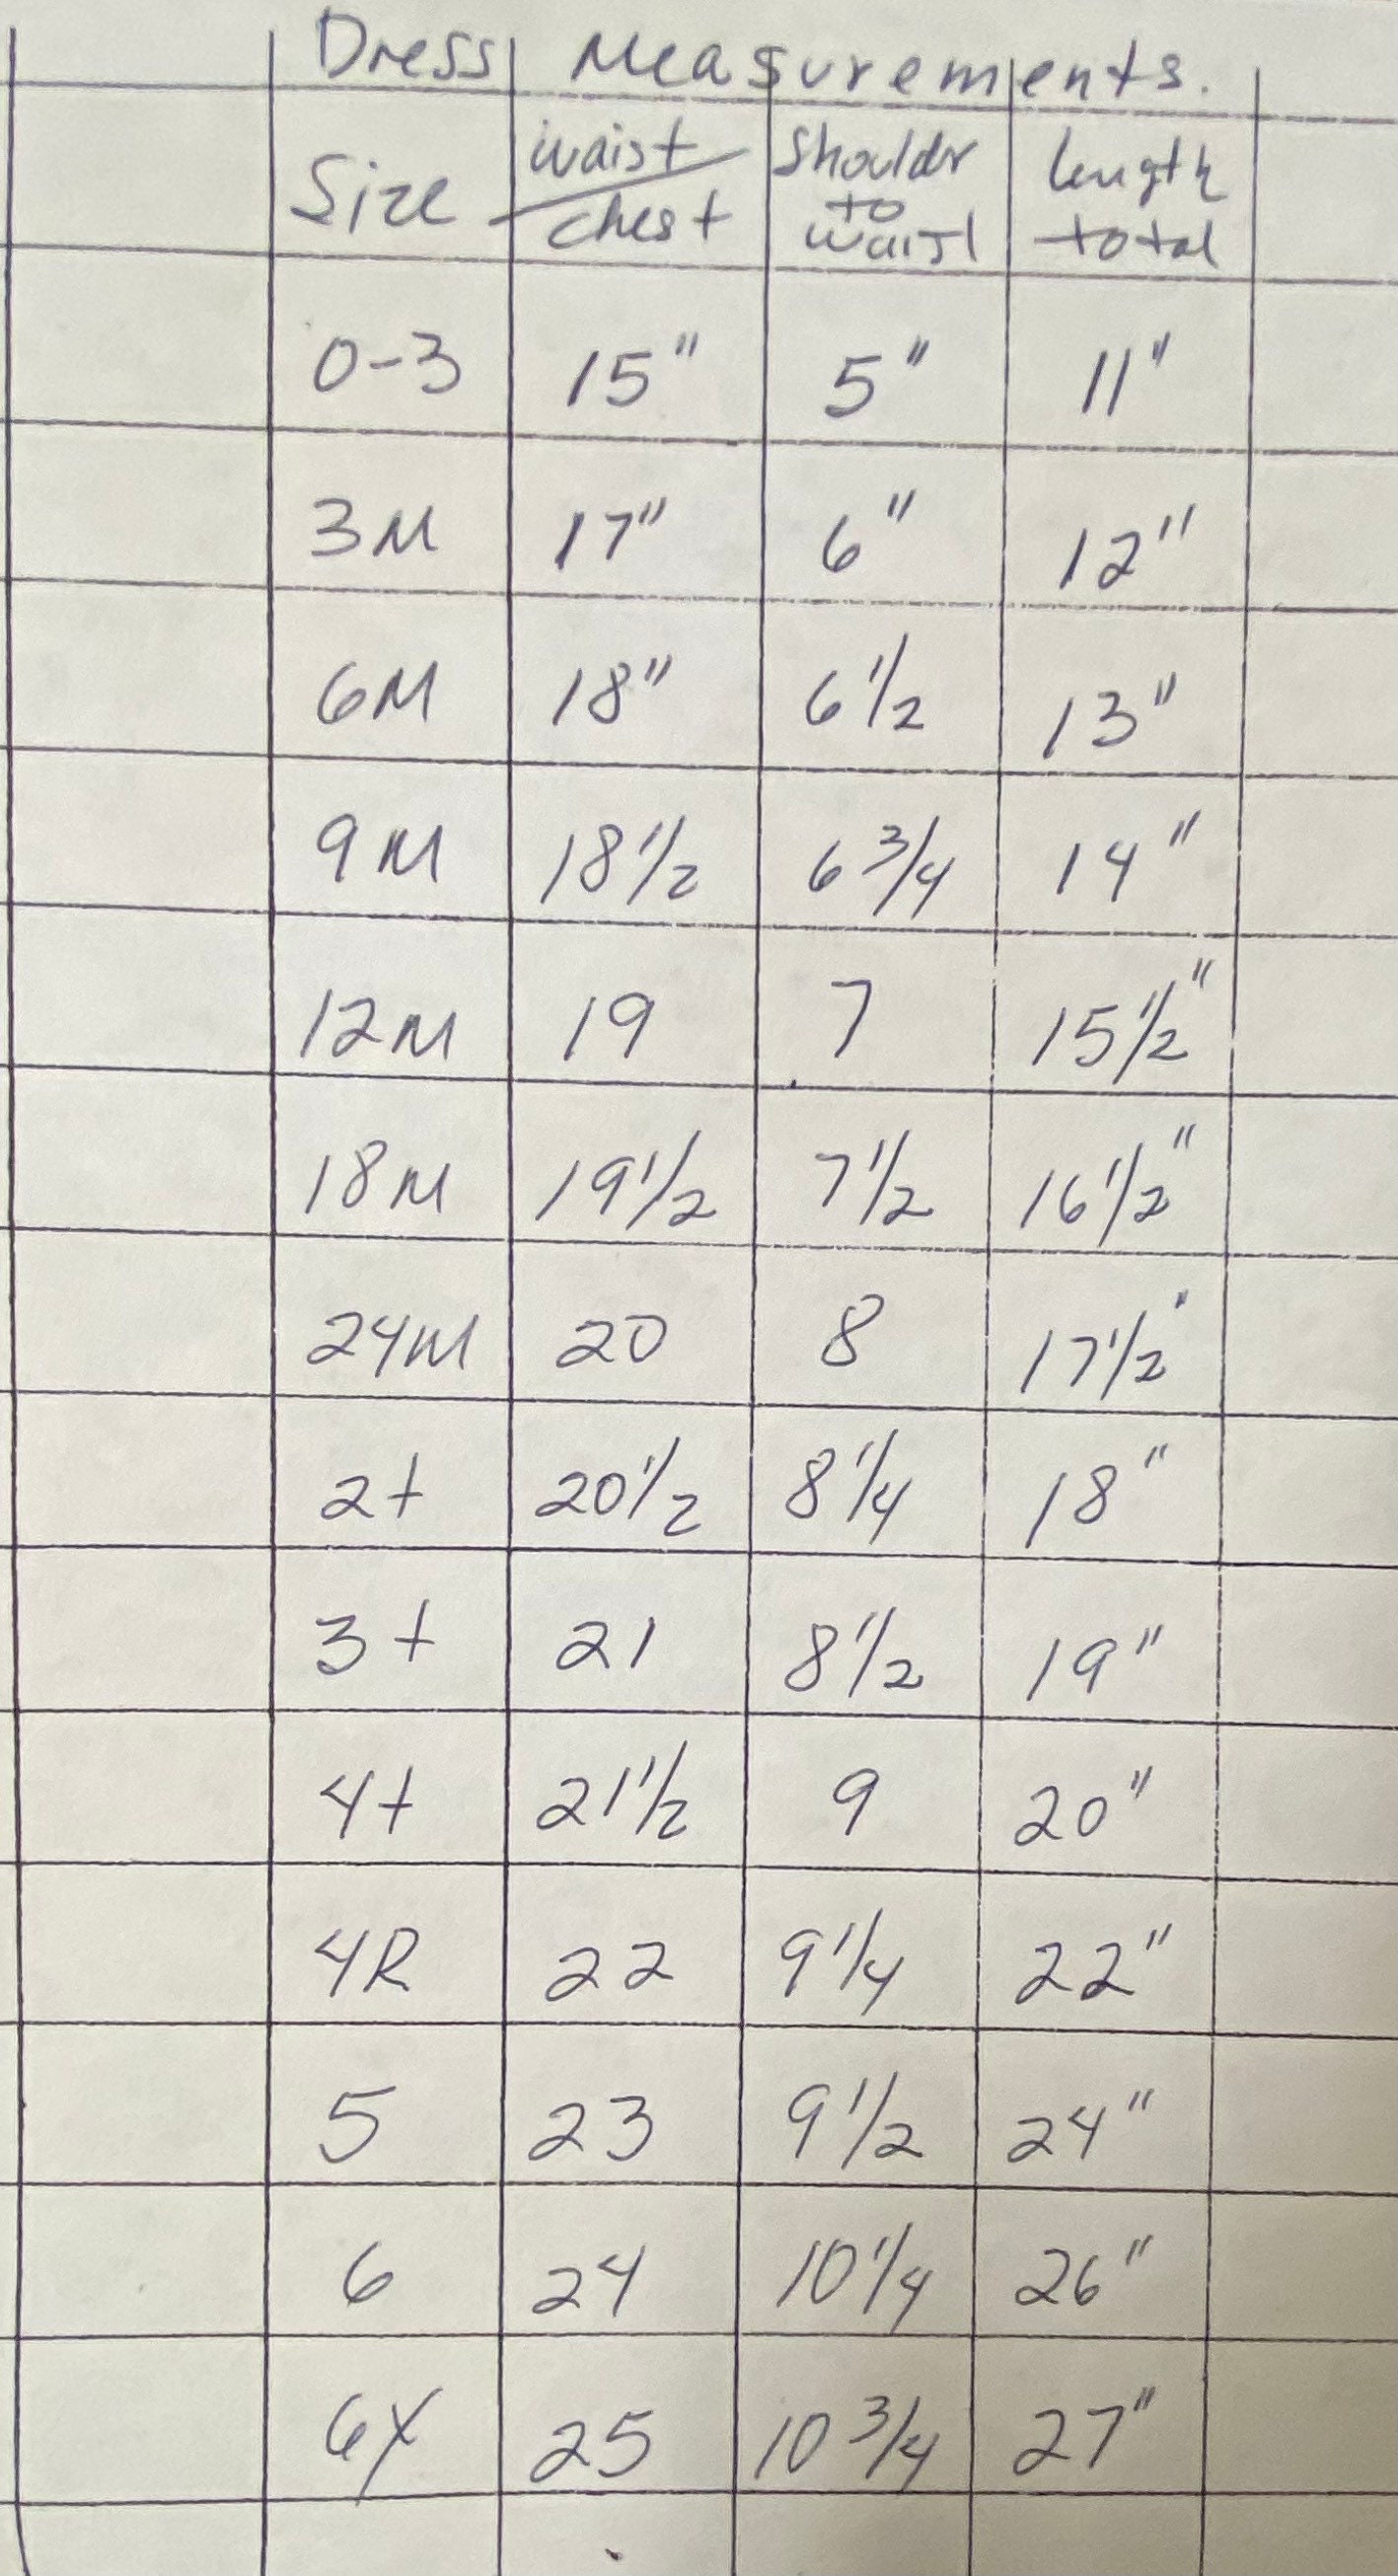 Dress Measurements.
Size waist/chest shoulder to waist length total
0-3 15" 5" 11"
3M 17" 6" 12"
6M 18" 6 1/2 13"
9M 18 1/2 6 3/4 14"
12M 19 7 15 1/2"
18M 19 1/2 7 1/2 16 1/2"
24M 20 8 17 1/2"
2t 20 1/2 8 1/4 18"
3t 21 8 1/2 19"
4t 21 1/2 9 20"
4R 22 9 1/4 22"
5 23 9 1/2 24"
6 24 10 1/4 26"
6X 25 10 3/4 27"